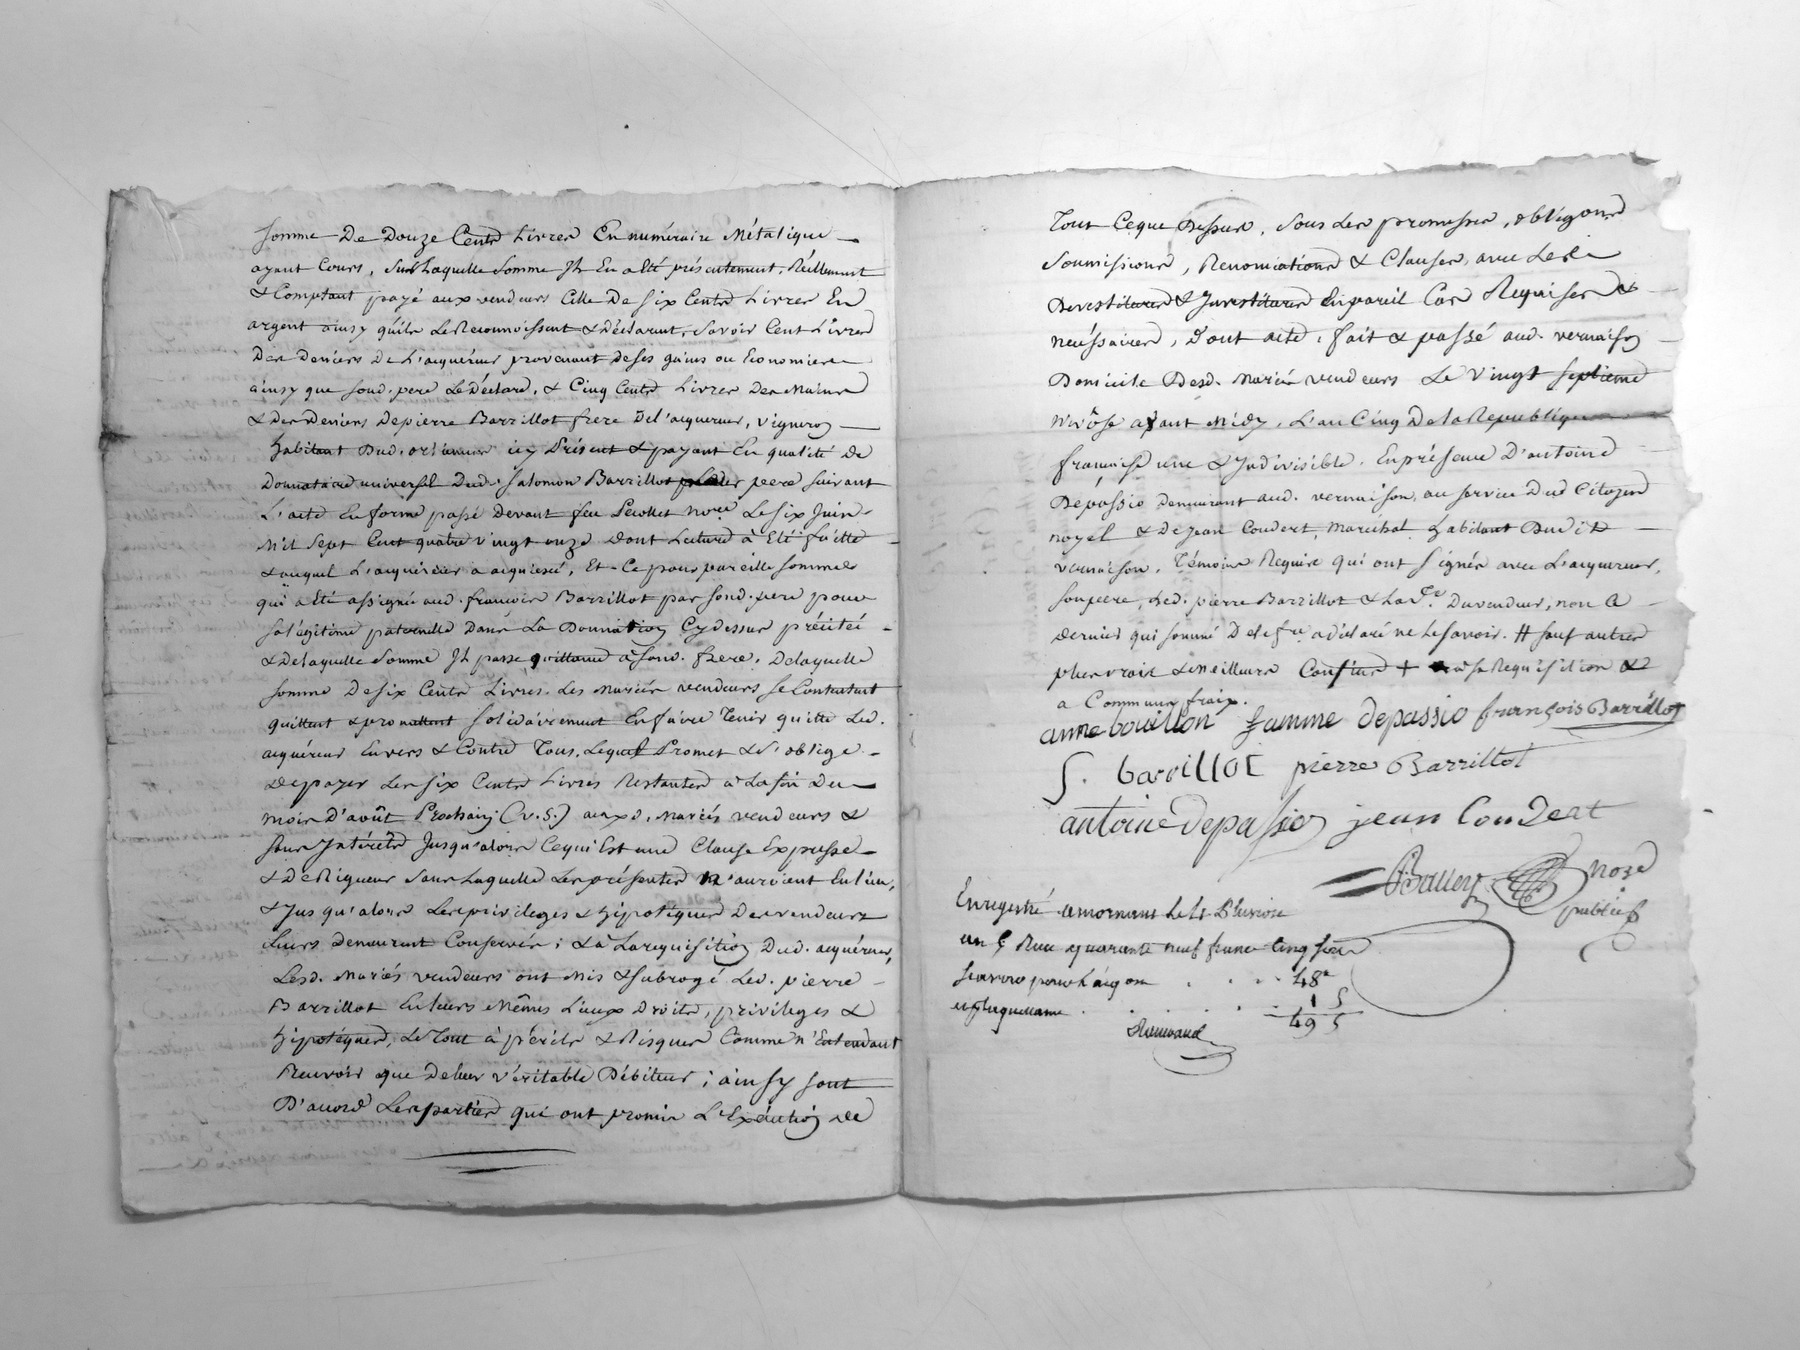 Somme De Douze Cents Livres En numéraire Métalique
ayant Cours, Sur Laquelle Somme Il En a Eté présentement, Réellement
& Comptant payé aux vendeurs Celle De Six Cents Livres En
argent ainsy qu'ils Le Reconnoissent & Déclarent, Savoir Cent Livres
Des Deniers De L'acquéreur provenant De Ses gains ou Economies
ainsy que Sond. pere Le Déclare, & Cinq Cents Livres Des Mains
& Des Deniers De pierre Barrillot frere De l'acquereur, vigneron
habitant Dud. icy Présent & payant En qualité De
Donnataire universel Dud. Salomon Barrillot pere Suivant
L'acte En forme passé Devant feu Pecollet nore Le Six Juin
Mil Sept Cent quatre vingt onze Dont Lecture a Eté faitte
& auquel L'acquéreur a acquiescé, Et Ce pour pareille Somme
qui a Eté assignée aud. françois Barrillot par Sond. pere pour
Sa légitime paternelle Dans La Donnation Cy Dessus précitée
& De laquelle Somme Il passe quittance a Sond. frere, De laquelle
Somme De Six Cents Livres Les Mariés vendeurs Se Contentent
quittent & promettent Solidairement En faire Tenir quitte Led.
acquéreur Envers & Contre Tous, Lequel Promet & S'oblige
De payer Les Six Cents Livres Restantes à La fin Du
Mois D'août Prochain (v. S.) auxd. Mariés vendeurs &
Sans Intérêts Jusqu'alors Ce qui Est une Clause Expresse
& De Rigueur Sans Laquelle Les présentes N'auroient Eu lieu,
& Jusqu'alors Les privileges & hipotéques Des vendeurs
Leurs Demeurent Conservés ; & à La requisition Dud. acquéreur,
Lesd. Mariés vendeurs ont Mis & Subrogé Led. pierre
Barrillot En leurs Mêmes Lieux Droits, privileges &
hipotéques, Le Tout à périls & Risques Comme n'Entendant
Recevoir que De leur véritable Débiteur ; ainsy Sont
D'accord Les parties qui ont promis L'Exécution De
Tout Ce que Dessus, Sous Les promesses, obligons
Soumissions, Renonciations & Clauses, avec Les
Devestitures & Investitures En pareil Cas Requises &
nécéssaires, Dont acte, fait & passé aud. vernaison
Domicile Desd. Mariés vendeurs Le Vingt Septieme
Nivôse avant Midy, L'an Cinq De la République
françoise une & Indivisible, En présence D'antoine
Depassio Demeurant aud. vernaison, au Service Du Citoyen
noyel & De Jean Coudert, Maréchal habitant Dudit
vernaison, Témoins Requis qui ont Signés avec L'acquereur,
Son pere, Led. pierre Barrillot & La De. Du vendeur, non Ce
dernier qui Sommé De le fre a déclaré ne Le Savoir. # Sauf autres
plus vrais & Meilleurs Confins + à Sa Requisition &
a Communs fraix.
anne bouillon famme depassio françois Barrillot
S. barillot pierre Barrillot
antoine depassio jean Coudert
nore
public
Enregistré a mornant Le 1r Pluviose
an 5 Reçu quarante neuf francs Cinq Sous
48
1 5
49 5